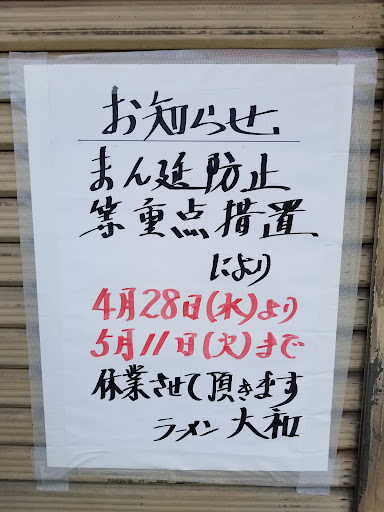 お知らせ
まん延防止
等重点措置
により
4月28日(水)より
5月11日(火)まで
休業させて頂きます
ラメン大和